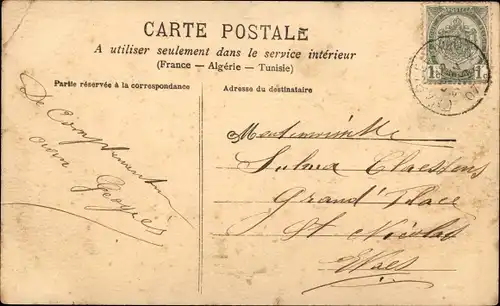 CARTE POSTALE
A utiliser seulement dans le service intérieur
(France — Algérie — Tunisie)
Partie réservée à la correspondance
Adresse du destinataire
1c 1c
07
Georges
Mademoiselle
Claessens
Grand'Place
St Nicolas
Waes